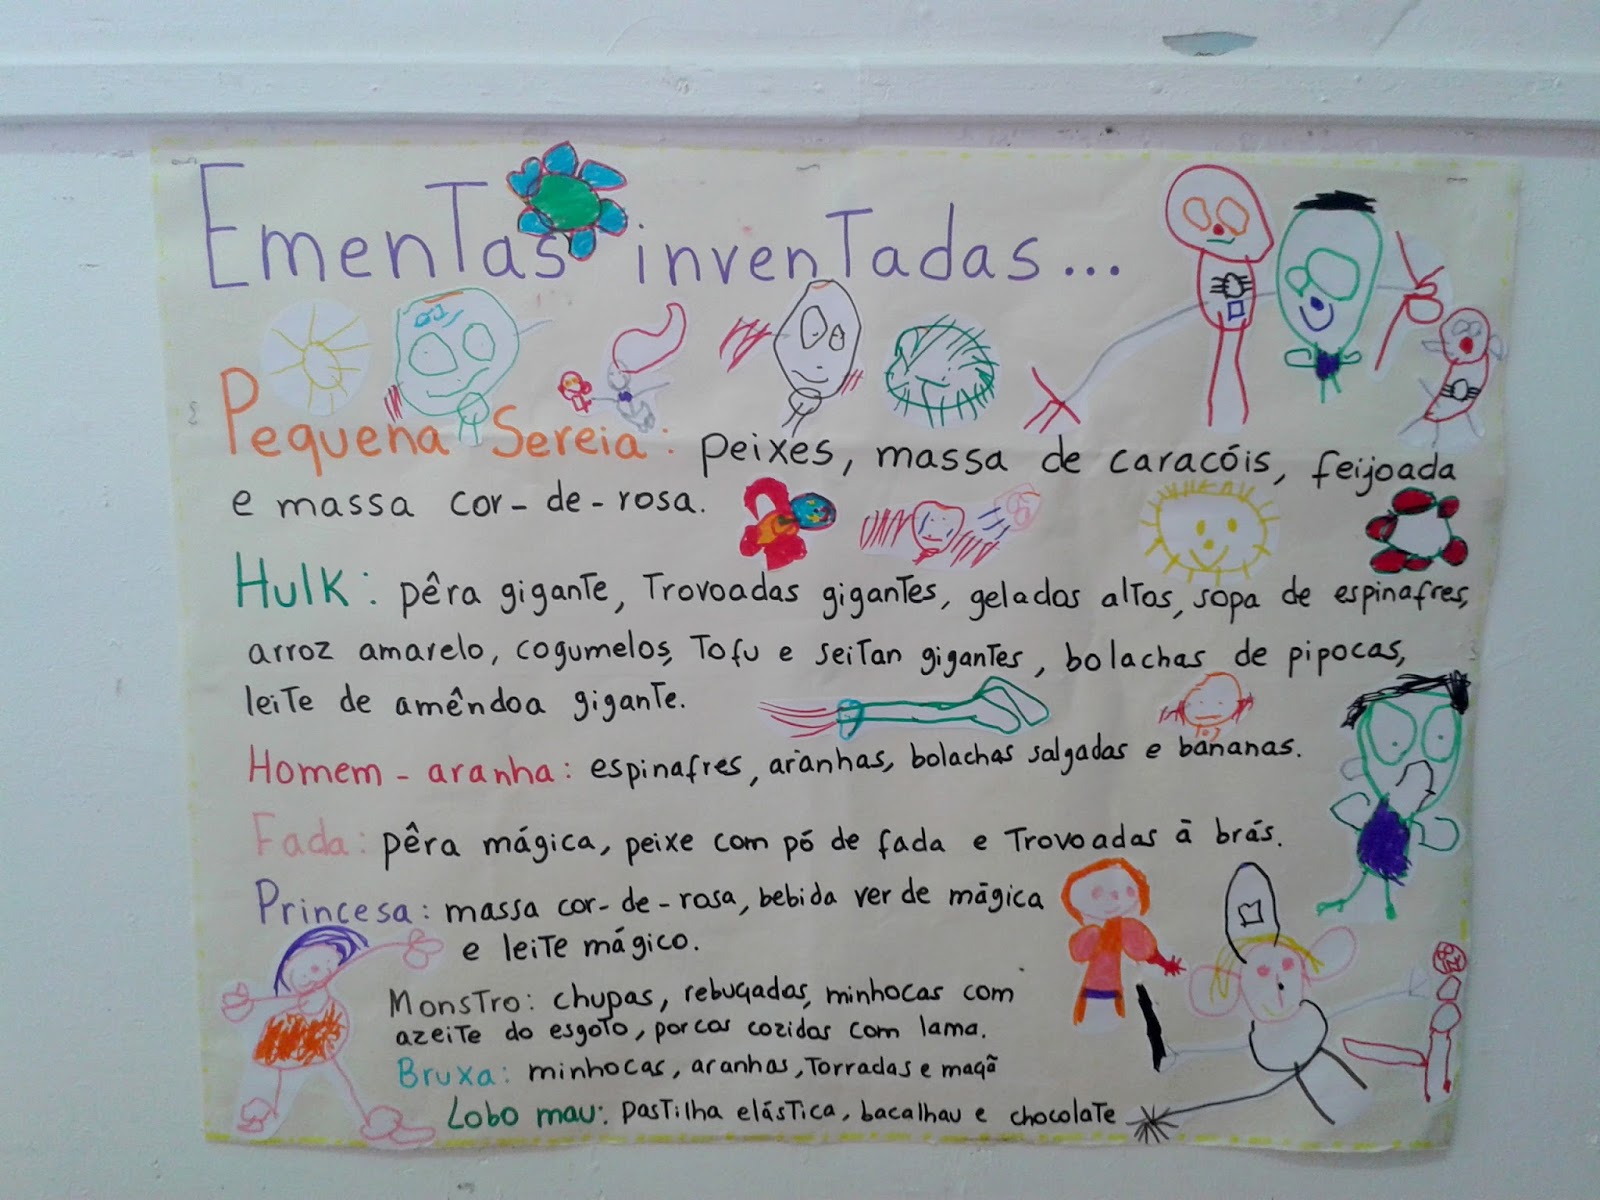 Ementas inventadas...
Pequena Sereia: peixes, massa de caracóis, feijoada
e massa cor-de-rosa.
Hulk: pêra gigante, Trovoadas gigantes, gelados altos, sopa de espinafres,
arroz amarelo, cogumelos, Tofu e seitan gigantes, bolachas de pipocas,
leite de amêndoa gigante.
Homem-aranha: espinafres, aranhas, bolachas salgadas e bananas.
Fada: pêra mágica, peixe com pó de fada e Trovoadas à brás.
Princesa: massa cor-de-rosa, bebida verde mágica
e leite mágico.
Monstro: chupas, rebuçadas, minhocas com
azeite do esgoto, porcos cozidos com lama.
Bruxa: minhocas, aranhas, Torradas e maçã
Lobo mau: pastilha elástica, bacalhau e chocolate